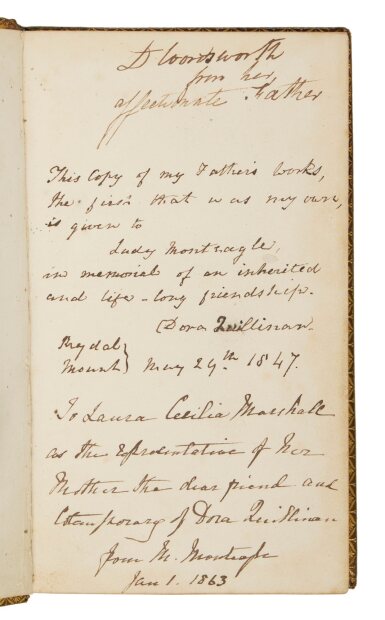 D Wordsworth
from her
affectionate Father
This Copy of my Father's Works,
the first that was my own,
is given to
Lady Monteagle,
in memorial of an inherited
and life-long friendship.
Dora Quillinan.
Rydal
Mount} May 24th 1847.
To Laura Cecilia Marshall
as the representative of her
Mother the dear friend and
Cotemporary of Dora Quillinan
from M. Monteagle
Jan 1. 1863